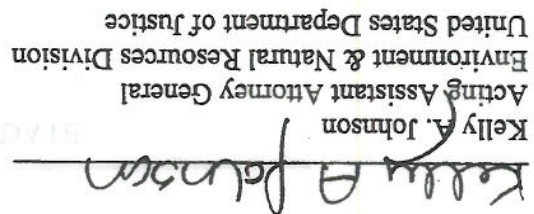 Kelly A Johnson
Kelly A. Johnson
Acting Assistant Attorney General
Environment & Natural Resources Division
United States Department of Justice